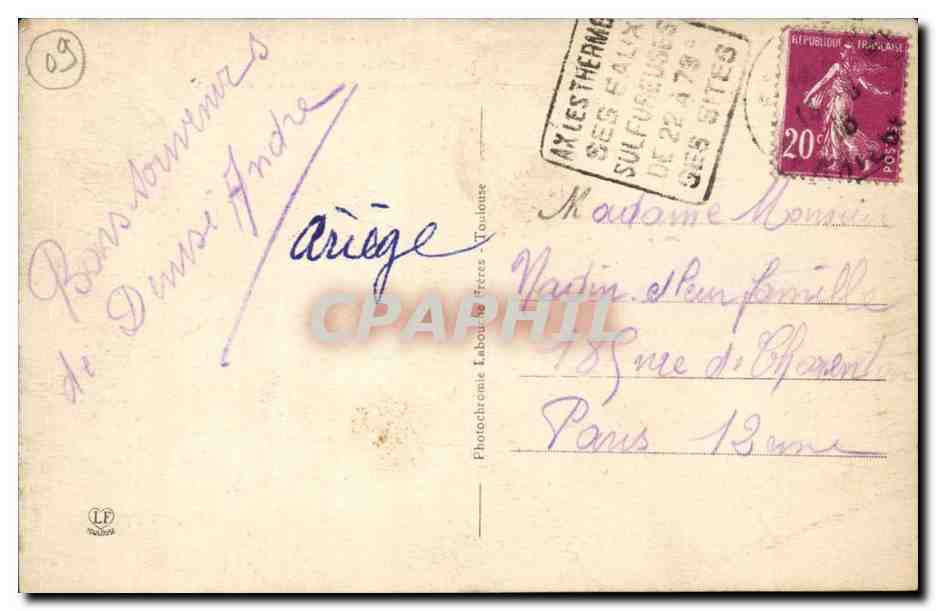 09
Bons souvenirs
de Denise André
Ariège
LF
TOULOUSE
Photochromie Labouche Frères - Toulouse
AX LES THERMES
SES EAUX
SULFUREUSES
DE 22 A 79°
SES SITES
REPUBLIQUE FRANÇAISE
20c
POSTES
Madame Monsieur
Nadin et leur famille
185 rue de Charenton
Paris 12 me
CPAPHIL